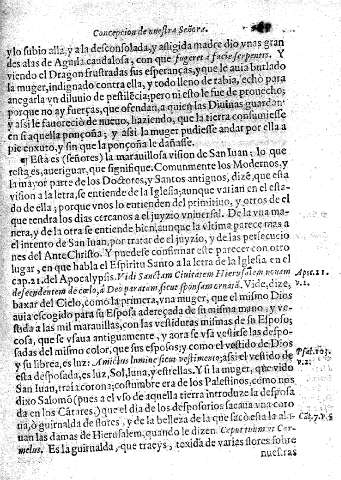 Concepcion de nuestra Señora.
y lo subio alla, y a la desconsolada, y afligida madre dio vnas gran
des alas de Aguila caudalosa, con que fugeret a facie serpentis. Y
viendo el Dragon frustradas sus esperanças, y que le auia burlado
la muger, indignado contra ella, y todo lleno de rabia, echò para
anegarla vn diluuio de pestilẽcia; pero ni esto le fue de prouecho;
porque no ay fuerças, que ofendan, a quien las Diuinas guardan:
y assi le fauoreciò de nueuo, haziendo, que la tierra consumiesse
en si aquella ponçoña; y assi la muger pudiesse andar por ella a
pie enxuto, y sin que la ponçoña le dañasse.
¶ Esta es (señores) la marauillosa vision de San Iuan; lo que
resta es, aueriguar, que signifique. Comunmente los Modernos, y
la mayor parte de los Doctores, y Santos antiguos, dizẽ, que esta
vision a la letra, se entiende de la Iglesia, aunque varian en el esta-
do de ella; porque vnos lo entienden del primitiuo, y otros de el
que tendra los dias cercanos a el juyzio vniuersal. De la vna ma-
nera, y de la otra se entiende bien, aunque la vltima parece mas a
el intento de San Iuan, por tratar de el juyzio, y de las persecucio
nes del Ante Christo. Y puedese confirmar este parecer con otro
lugar, en que habla el Espiritu Santo a la letra de la Iglesia en el
cap. 21. del Apocalypsi. Vidi Sanctam Ciuitatem Hierusalem nouam
descendentem de cœlo, à Deo paratam sicut sponsam ornatã. Vide, dize,
Apoc. 21.
v. 1.
baxar del Cielo, como la primera, vna muger, que el mismo Dios
auia escogido para su Esposa adereçada de su misma mano, y ve-
stida a las mil marauillas, con las vestiduras mismas de su Esposo;
cosa, que se vsaua antiguamente, y aora se vsa vestirse las despo-
sadas del mismo color, que sus esposos; y como el vestido de Dios
y su librea, es luz: Amictus lumine sicut vestimento; assi el vestido de
Psal. 103.
v. 2.
esta desposada, es luz, Sol, luna, y estrellas. Y si la muger, que vido
San Iuan, traîa corona; costumbre era de los Palestinos, como nos
dixo Salomõ (pues a el vso de aquella tierra introduze la desposa
da en los Cãtares) que el dia de los desposorios sacaua vna coro
na, o guirnalda de flores, y de la belleza de la que sacò esta la ala-
uan las damas de Hierusalem, quando le dizen. Caput tuum vt Car-
Cãt. 7. v. 5
melus. Es la guirnalda, que traeys, texida de varias flores sobre
nuestras